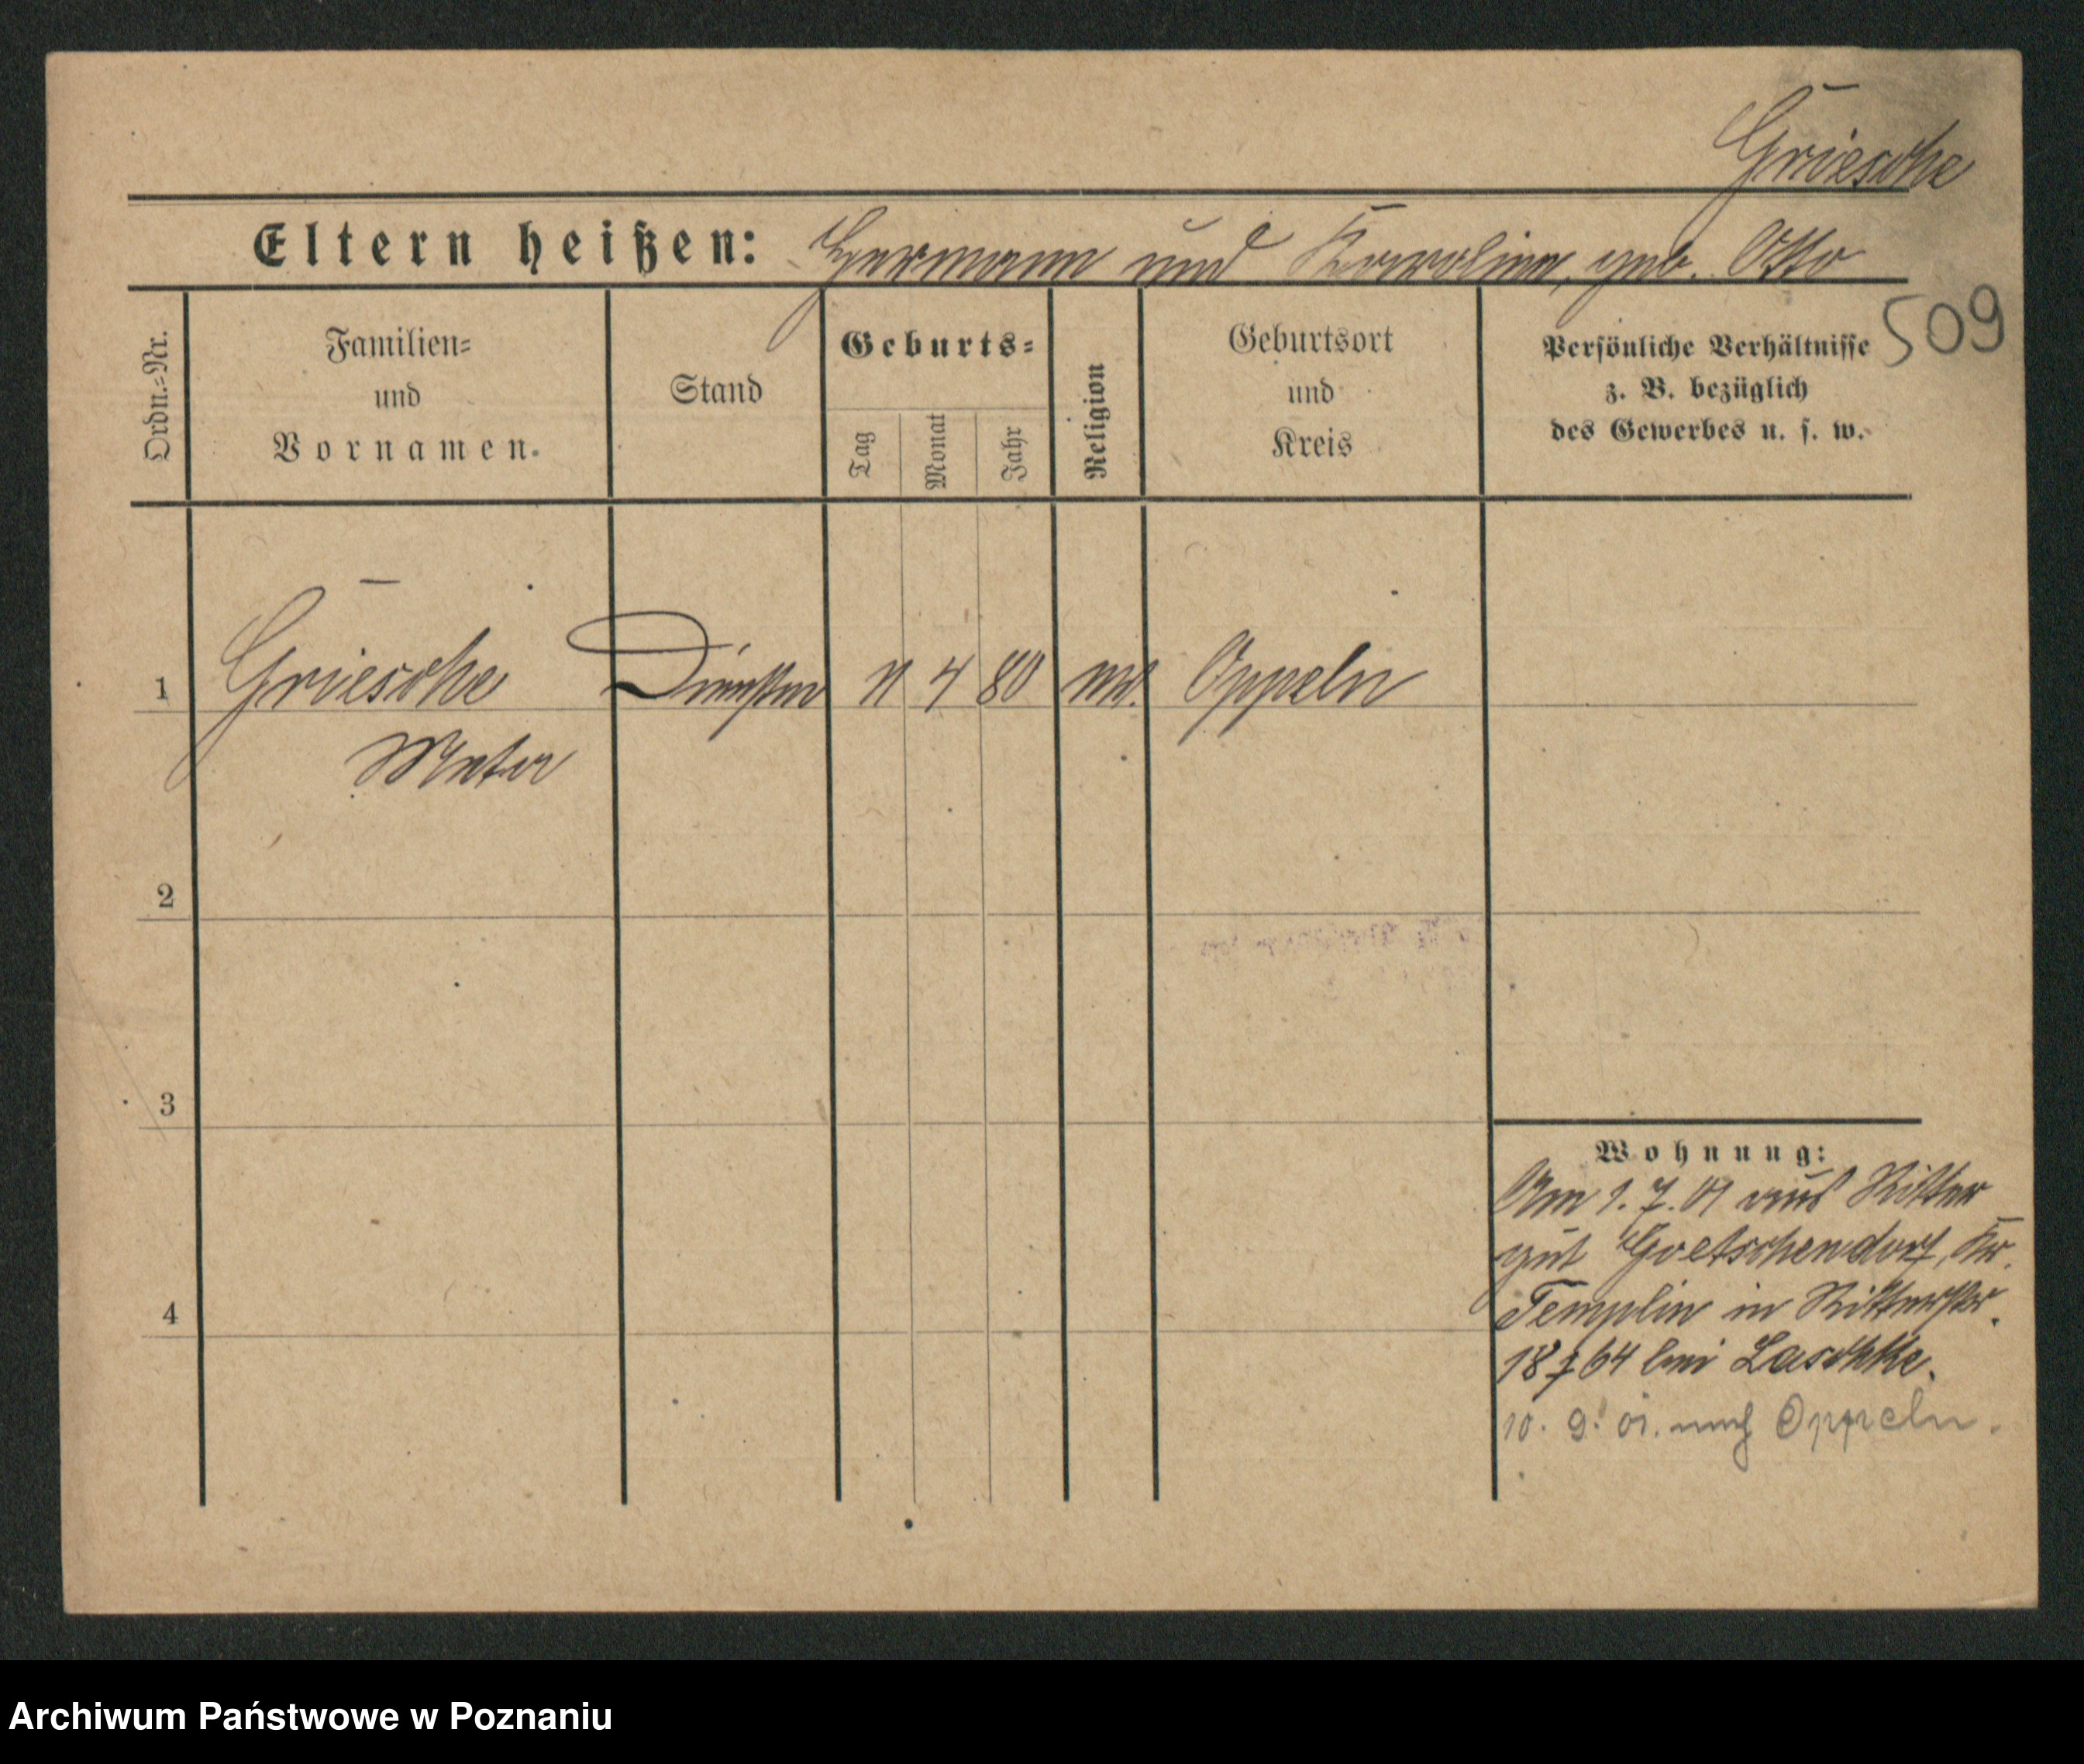 Griesche
Eltern heißen: Hermann und Karoline, geb. Otto
509
Ordn.-Nr.
Familien-
und
Vornamen.
Stand
Geburts-
Tag
Monat
Jahr
Religion
Geburtsort
und
Kreis
Persönliche Verhältnisse
z. B. bezüglich
des Gewerbes u. s. w.
1 Griesche 4 80 Oppeln
2
3
4
Wohnung:
Am 1.7.01 aus Ritter
gut Goetschendorf, Kr.
Templin in Ritterstr.
bei Laschke.
10. 9. 01. nach Oppeln.
Archiwum Państwowe w Poznaniu